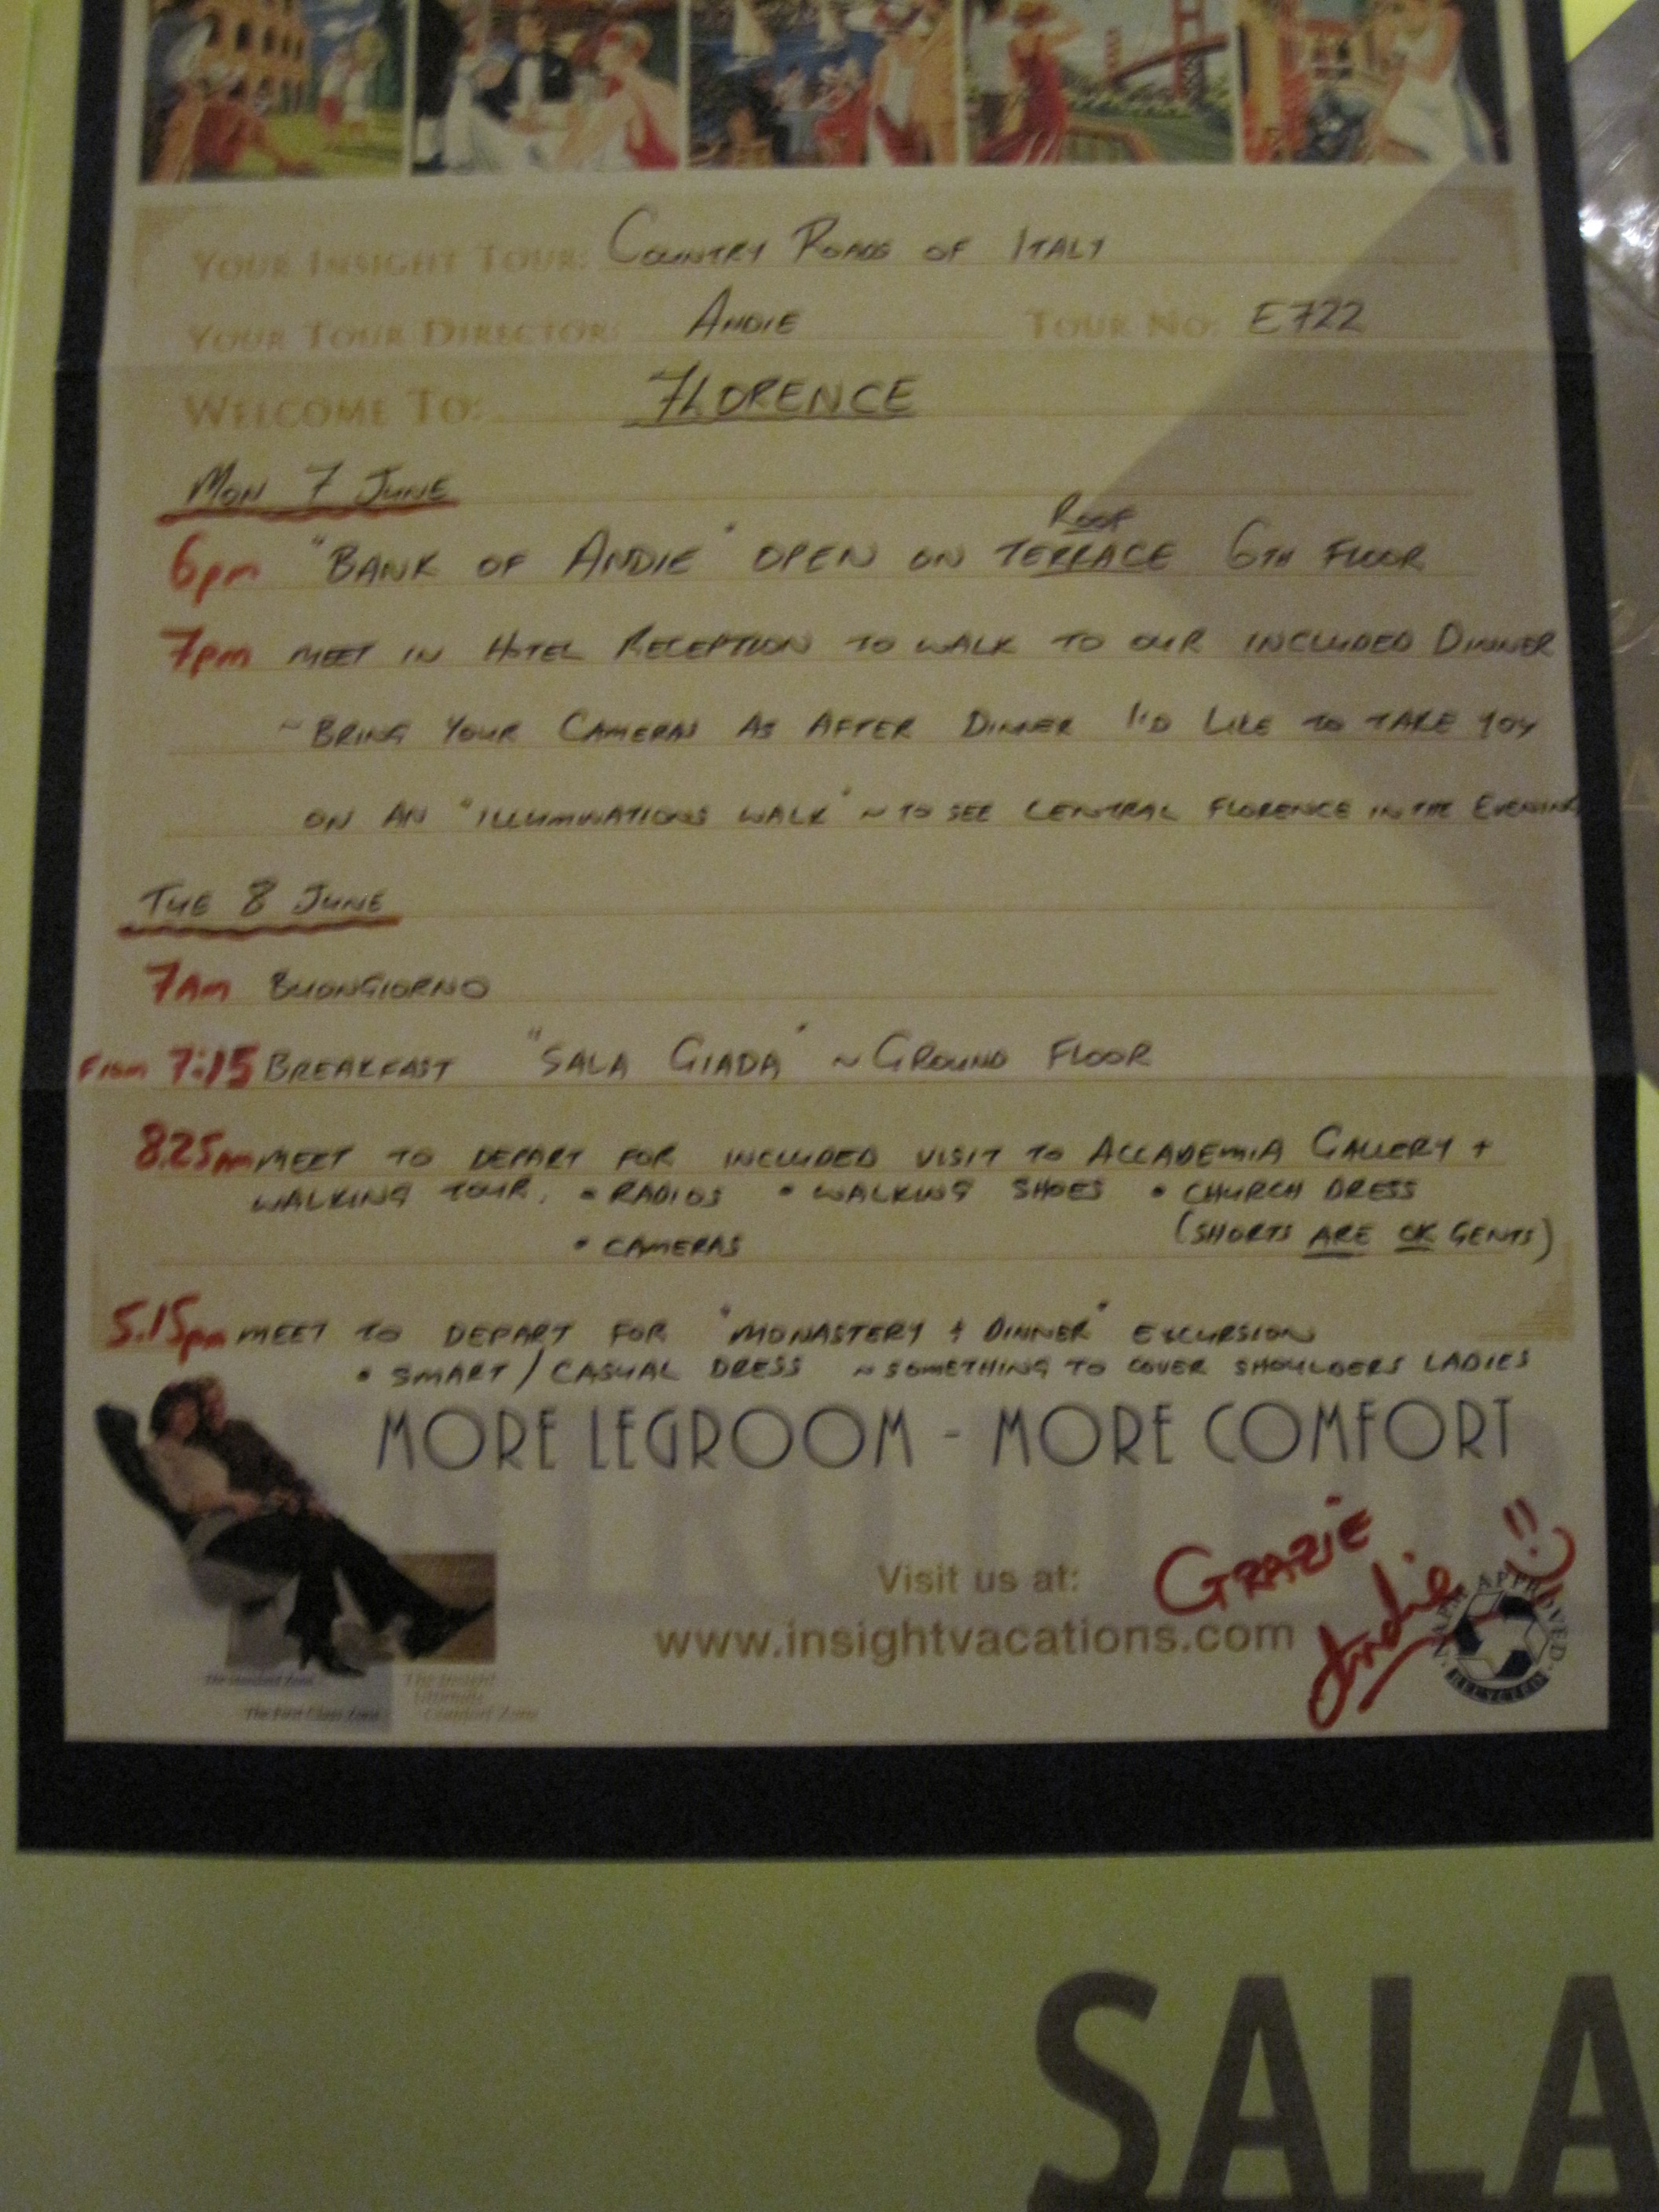 YOUR INSIGHT TOUR: COUNTRY ROADS OF ITALY
YOUR TOUR DIRECTOR: ANDIE TOUR NO: E722
WELCOME TO: FLORENCE
MON 7 JUNE
ROOF
6pm "BANK OF ANDIE" OPEN ON TERRACE 6TH FLOOR
7pm MEET IN HOTEL RECEPTION TO WALK TO OUR INCLUDED DINNER
~ BRING YOUR CAMERAS AS AFTER DINNER I'D LIKE TO TAKE YOU
ON AN "ILLUMINATIONS WALK" ~ TO SEE CENTRAL FLORENCE IN THE EVENING
TUE 8 JUNE
7AM BUONGIORNO
FROM 7:15 BREAKFAST "SALA GIADA" ~ GROUND FLOOR
8.25AM MEET TO DEPART FOR INCLUDED VISIT TO ACCADEMIA GALLERY +
WALKING TOUR. • RADIOS • WALKING SHOES • CHURCH DRESS
• CAMERAS (SHORTS ARE OK GENTS)
5.15pm MEET TO DEPART FOR "MONASTERY + DINNER" EXCURSION
• SMART / CASUAL DRESS ~ SOMETHING TO COVER SHOULDERS LADIES
MORE LEGROOM - MORE COMFORT
GRAZIE
Andie !!
Visit us at:
www.insightvacations.com
NAPM APPROVED
RECYCLED
The Standard Zone
The First Class Zone
The Insight
Ultimate
Comfort Zone
SALA